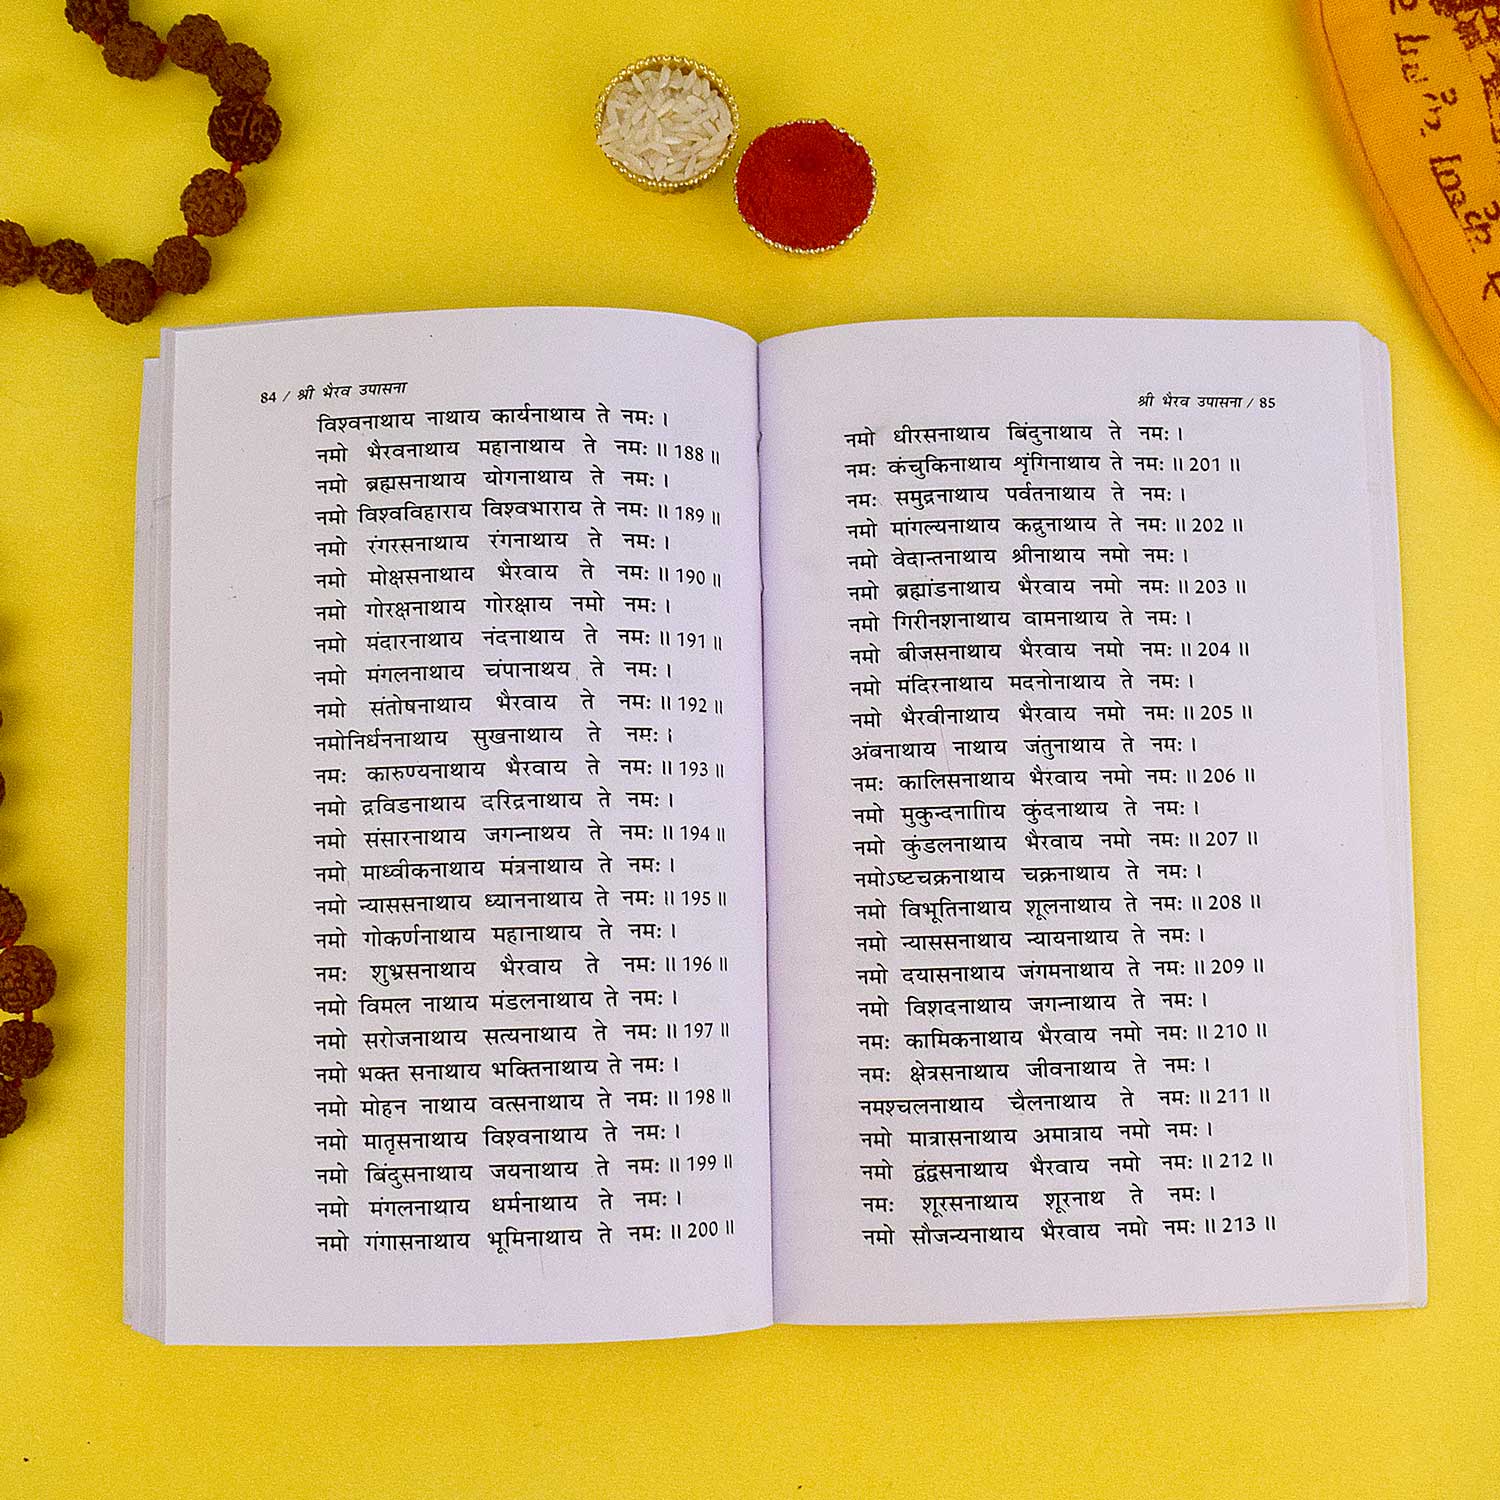 84 / श्री भैरव उपासना
विश्वनाथाय नाथाय कार्यनाथाय ते नमः।
नमो भैरवनाथाय महानाथाय ते नमः॥188॥
नमो ब्रह्मसनाथाय योगनाथाय ते नमः।
नमो विश्वविहाराय विश्वभाराय ते नमः॥189॥
नमो रंगरसनाथाय रंगनाथाय ते नमः।
नमो मोक्षसनाथाय भैरवाय ते नमः॥190॥
नमो गोरक्षनाथाय गोरक्षाय नमो नमः।
नमो मंदारनाथाय नंदनाथाय ते नमः॥191॥
नमो मंगलनाथाय चंपानाथय ते नमः।
नमो संतोषनाथाय भैरवाय ते नमः॥192॥
नमोनिर्धननाथाय सुखनाथाय ते नमः।
नमः कारुण्यनाथाय भैरवाय ते नमः॥193॥
नमो द्रविडनाथाय दरिद्रनाथाय ते नमः।
नमो संसारनाथाय जगन्नाथय ते नमः॥194॥
नमो माध्वीकनाथाय मंत्रनाथाय ते नमः।
नमो न्याससनाथाय ध्याननाथाय ते नमः॥195॥
नमो गोकर्णनाथाय महानाथाय ते नमः।
नमः शुभ्रसनाथाय भैरवाय ते नमः॥196॥
नमो विमल नाथाय मंडलनाथाय ते नमः।
नमो सरोजनाथाय सत्यनाथाय ते नमः॥197॥
नमो भक्त सनाथाय भक्तिनाथाय ते नमः।
नमो मोहन नाथाय वत्सनाथाय ते नमः॥198॥
नमो मातृसनाथाय विश्वनाथाय ते नमः।
नमो बिंदुसनाथाय जयनाथाय ते नमः॥199॥
नमो मंगलनाथाय धर्मनाथाय ते नमः।
नमो गंगासनाथाय भूमिनाथाय ते नमः॥200॥
श्री भैरव उपासना / 85
नमो धीरसनाथाय बिंदुनाथाय ते नमः।
नमः कंचुकिनाथाय शृंगिनाथाय ते नमः॥201॥
नमः समुद्रनाथाय पर्वतनाथाय ते नमः।
नमो मांगल्यनाथाय कद्रुनाथाय ते नमः॥202॥
नमो वेदान्तनाथाय श्रीनाथाय नमो नमः।
नमो ब्रह्मांडनाथाय भैरवाय नमो नमः॥203॥
नमो गिरीनशनाथाय वामनाथाय ते नमः।
नमो बीजसनाथाय भैरवाय नमो नमः॥204॥
नमो मंदिरनाथाय मदनोनाथाय ते नमः।
नमो भैरवीनाथाय भैरवाय नमो नमः॥205॥
अंबनाथाय नाथाय जंतुनाथाय ते नमः।
नमः कालिसनाथाय भैरवाय नमो नमः॥206॥
नमो मुकुन्दनााािय कुंदनाथाय ते नमः।
नमो कुंडलनाथाय भैरवाय नमो नमः॥207॥
नमोऽष्टचक्रनाथाय चक्रनाथाय ते नमः।
नमो विभूतिनाथाय शूलनाथाय ते नमः॥208॥
नमो न्याससनाथाय न्यायनाथाय ते नमः।
नमो दयासनाथाय जंगमनाथाय ते नमः॥209॥
नमो विशदनाथाय जगन्नाथाय ते नमः।
नमः कामिकनाथाय भैरवाय नमो नमः॥210॥
नमः क्षेत्रसनाथाय जीवनाथाय ते नमः।
नमश्चलनाथाय चैलनाथाय ते नमः॥211॥
नमो मात्रासनाथाय अमात्राय नमो नमः।
नमो द्वंद्वसनाथाय भैरवाय नमो नमः॥212॥
नमः शूरसनाथाय शूरनाथ ते नमः।
नमो सौजन्यनाथाय भैरवाय नमो नमः॥213॥